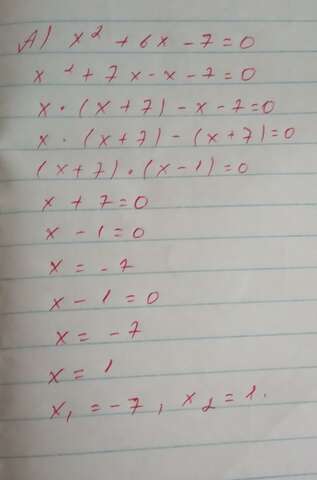 A) x² + 6x - 7 = 0
x² + 7x - x - 7 = 0
x • (x + 7) - x - 7 = 0
x • (x + 7) - (x + 7) = 0
(x + 7) • (x - 1) = 0
x + 7 = 0
x - 1 = 0
x = - 7
x - 1 = 0
x = - 7
x = 1
x₁ = - 7, x₂ = 1.